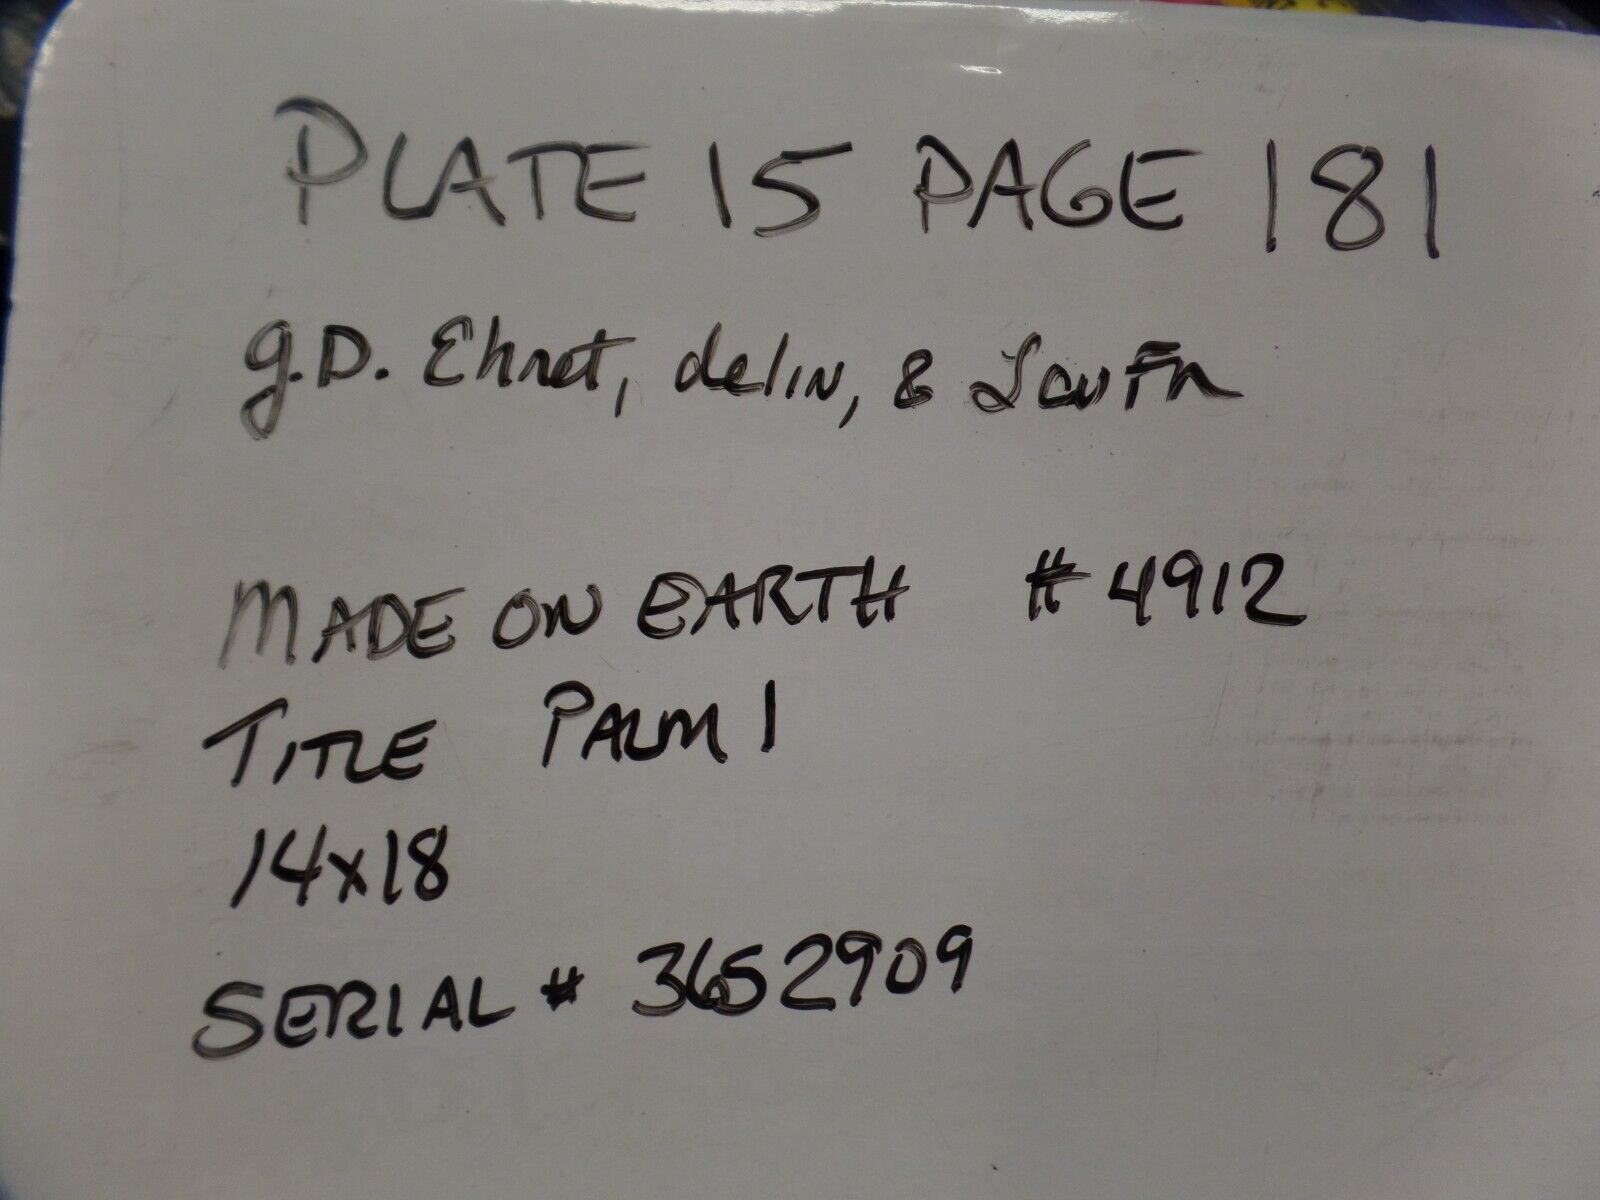 PLATE 15 PAGE 181
G.D. Ehret, delin, &
MADE ON EARTH # 4912
TITLE PALM 1
14x18
SERIAL # 3652909